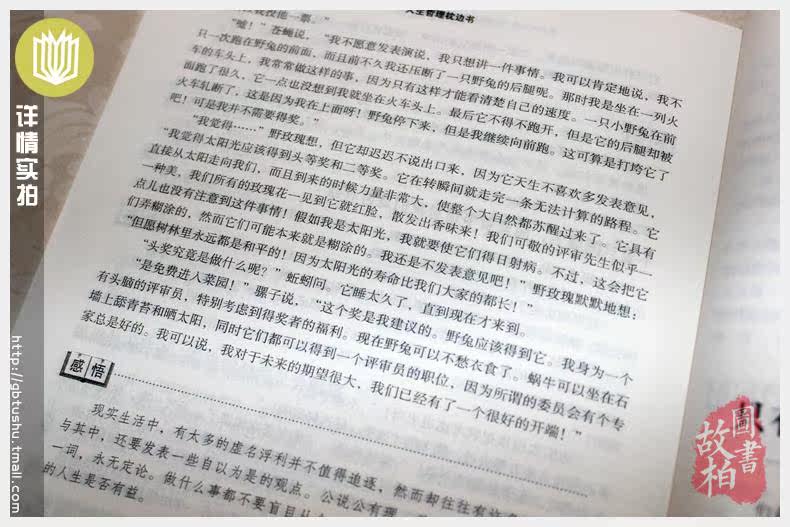 人生哲理枕边书
我投他一票。”
“嘘！”苍蝇说，“我不愿意发表演说，我只想讲一件事情。我可以肯定地说，我不
只一次跑在野兔的前面，而且前不久我还压断了一只野兔的后腿呢。那时我是坐在一列火
车的车头上，我常常做这样的事，因为只有这样才能看清楚自己的速度。一只小野兔在前
面跑了很久，它一点也没想到我就坐在火车头上。最后它不得不跑开，但是它的后腿却被
火车轧断了，这是因为我在上面呀！野兔停下来，但是我继续向前跑。这可算是打垮它了
吧！可是我并不需要得奖。”
“我觉得……”野玫瑰想，但它却迟迟不说出口来，因为它天生不喜欢多发表意见，
“我觉得太阳光应该得到头等奖和二等奖。它在转瞬间就走完一条无法计算的路程。它
直接从太阳走向我们，而且到来的时候力量非常大，使整个大自然都苏醒过来了。它具有
一种美，我们所有的玫瑰花一见到它就红脸、散发出香味来！我们可敬的评审先生似乎一
点儿也没有注意到这件事情！假如我是太阳光，我就要使它们得日射病。不过，这会把它
们弄糊涂的，然而它们可能本来就是糊涂的。我还是不发表意见吧！”野玫瑰默默地想：
“但愿树林里永远都是和平的！因为太阳光的寿命比我们大家的都长！”
“头奖究竟是做什么呢？”蚯蚓问。它睡太久了，直到现在才来到。
“是免费进入菜园！”骡子说，“这个奖是我建议的。野兔应该得到它。我身为一个
有头脑的评审员，特别考虑到得奖者的福利。现在野兔可以不愁衣食了。蜗牛可以坐在石
墙上舔青苔和晒太阳，同时它们都可以得到一个评审员的职位，因为所谓的委员会有个专
家总是好的。我可以说，我对于未来的期望很大，我们已经有了一个很好的开端！”
感悟
现实生活中，有太多的虚名浮利并不值得追逐，然而却往往有许
与其中，还要发表一些自以为是的观点。公说公有理
一词，永无定论。做什么事都不要盲目从
的人生是否有益。
详情实拍
http://gbtushu.tmall.com
故柏圖書